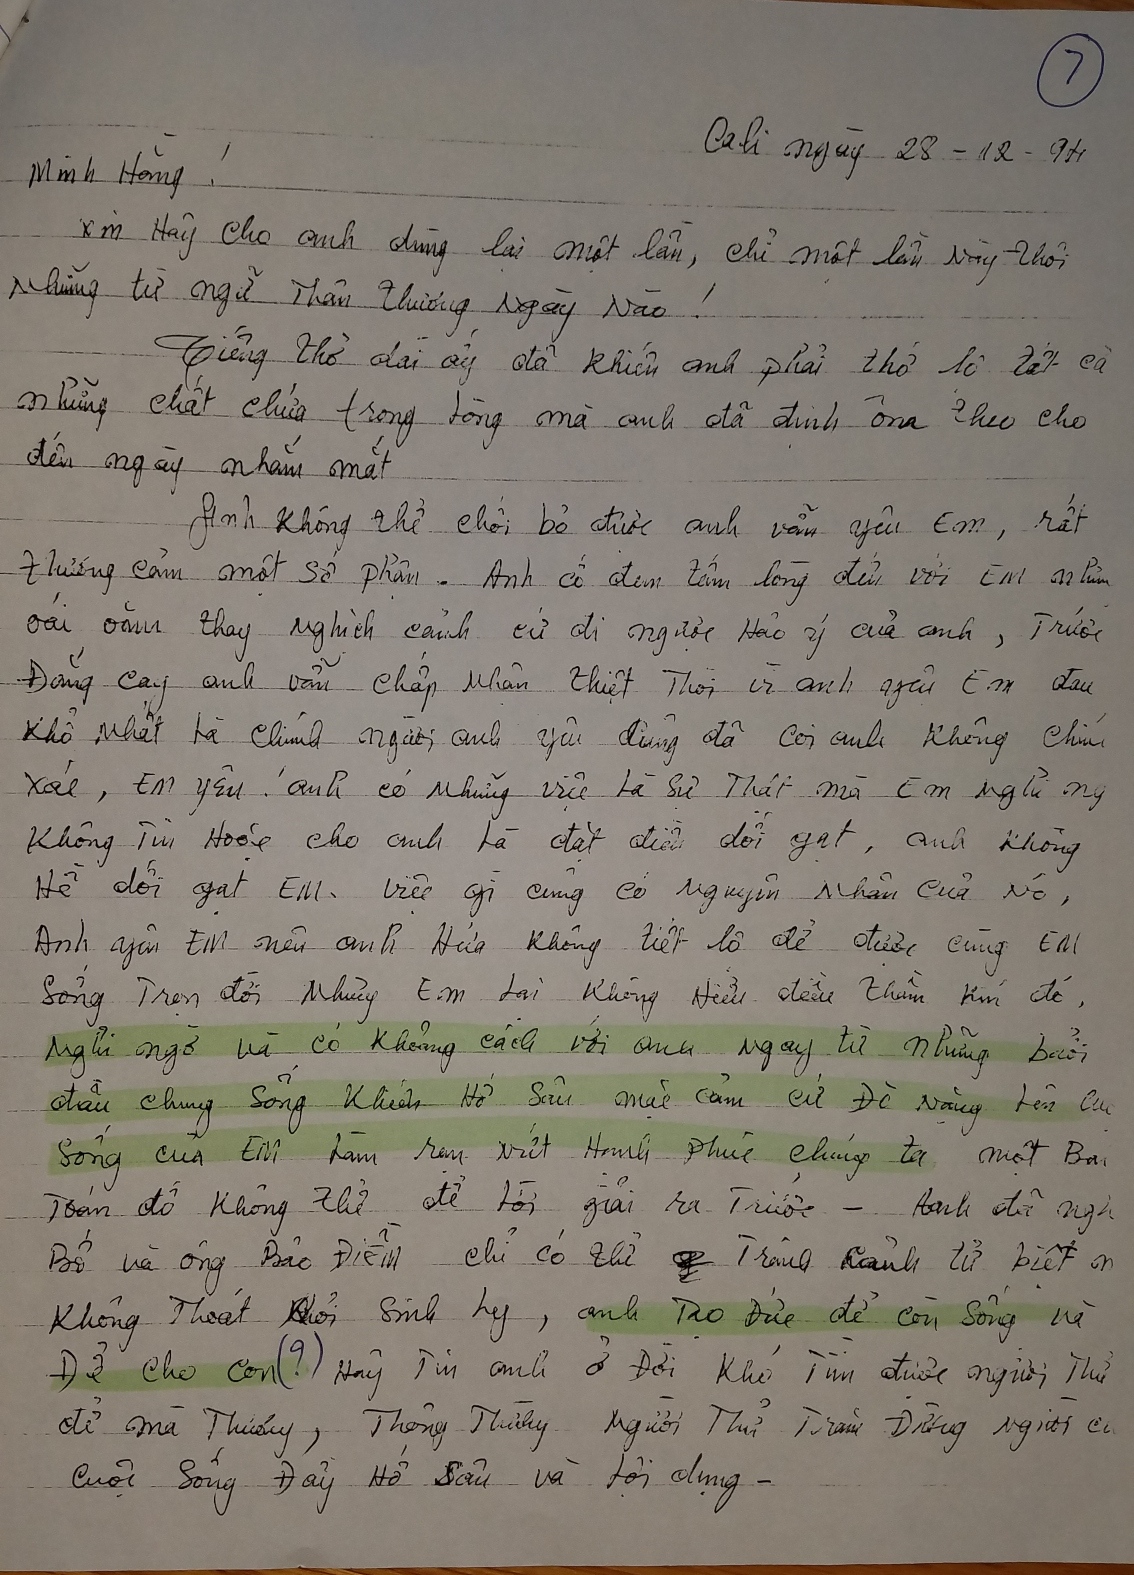 7
Cali ngày 28 - 12 - 94
Minh Hằng !
xin Hãy cho anh dùng lại một lần, chỉ một lần này thôi
Những từ ngữ Thân thương Ngày Nào !
Tiếng thở dài ấy đã khiến anh phải thổ lộ tất cả
những chất chứa trong lòng mà anh đã định ôm theo cho
đến ngày nhắm mắt
Anh không thể chối bỏ được anh vẫn yêu Em, rất
thương cảm một số phận. Anh có đem tấm lòng đến với EM
thay Nghịch cảnh cứ đi ngược Hảo ý của anh, Trước
Đắng cay anh vẫn chấp Nhận thiệt Thòi vì anh yêu Em đau
Khổ Nhất Là chính người anh yêu đã coi anh Không chín
xác, EM yêu ! anh có Những việc Là Sự Thật mà Em Nghi ng
Không Tin Hoặc cho anh Là đặt điều dối gạt, anh Không
Hề dối gạt EM. việc gì cũng có Nguyên Nhân Của Nó,
Anh yêu EM nên anh Hứa Không tiết lộ để được cùng EM
Sống Trọn đời Nhưng Em Lại Không Hiểu điều thầm kín đó,
Nghi ngờ và có Khoảng cách với anh Ngay từ những buổi
đầu chung Sống Khiến Hố Sâu mặc cảm cứ Đè Nặng Lên Cu
Sống của EM Làm rạn Nứt Hạnh phúc chúng ta một Bai
Toán đố Không thể để Lời giải ra Trước - Anh đã ngh
Bố và ông Bảo ĐIỀM chỉ có thể Tránh cảnh tử biệt n
Không Thoát Khỏi Sinh Ly, anh Tạo Đức để còn Sống và
Để cho con (?) Hãy Tin anh ở Đời Khó Tìm được người Thứ
để mà Thương, Thông Thường Người Thứ Trăm Đường Người
Cuộc Sống Đầy Hố Sâu và Lợi dụng -